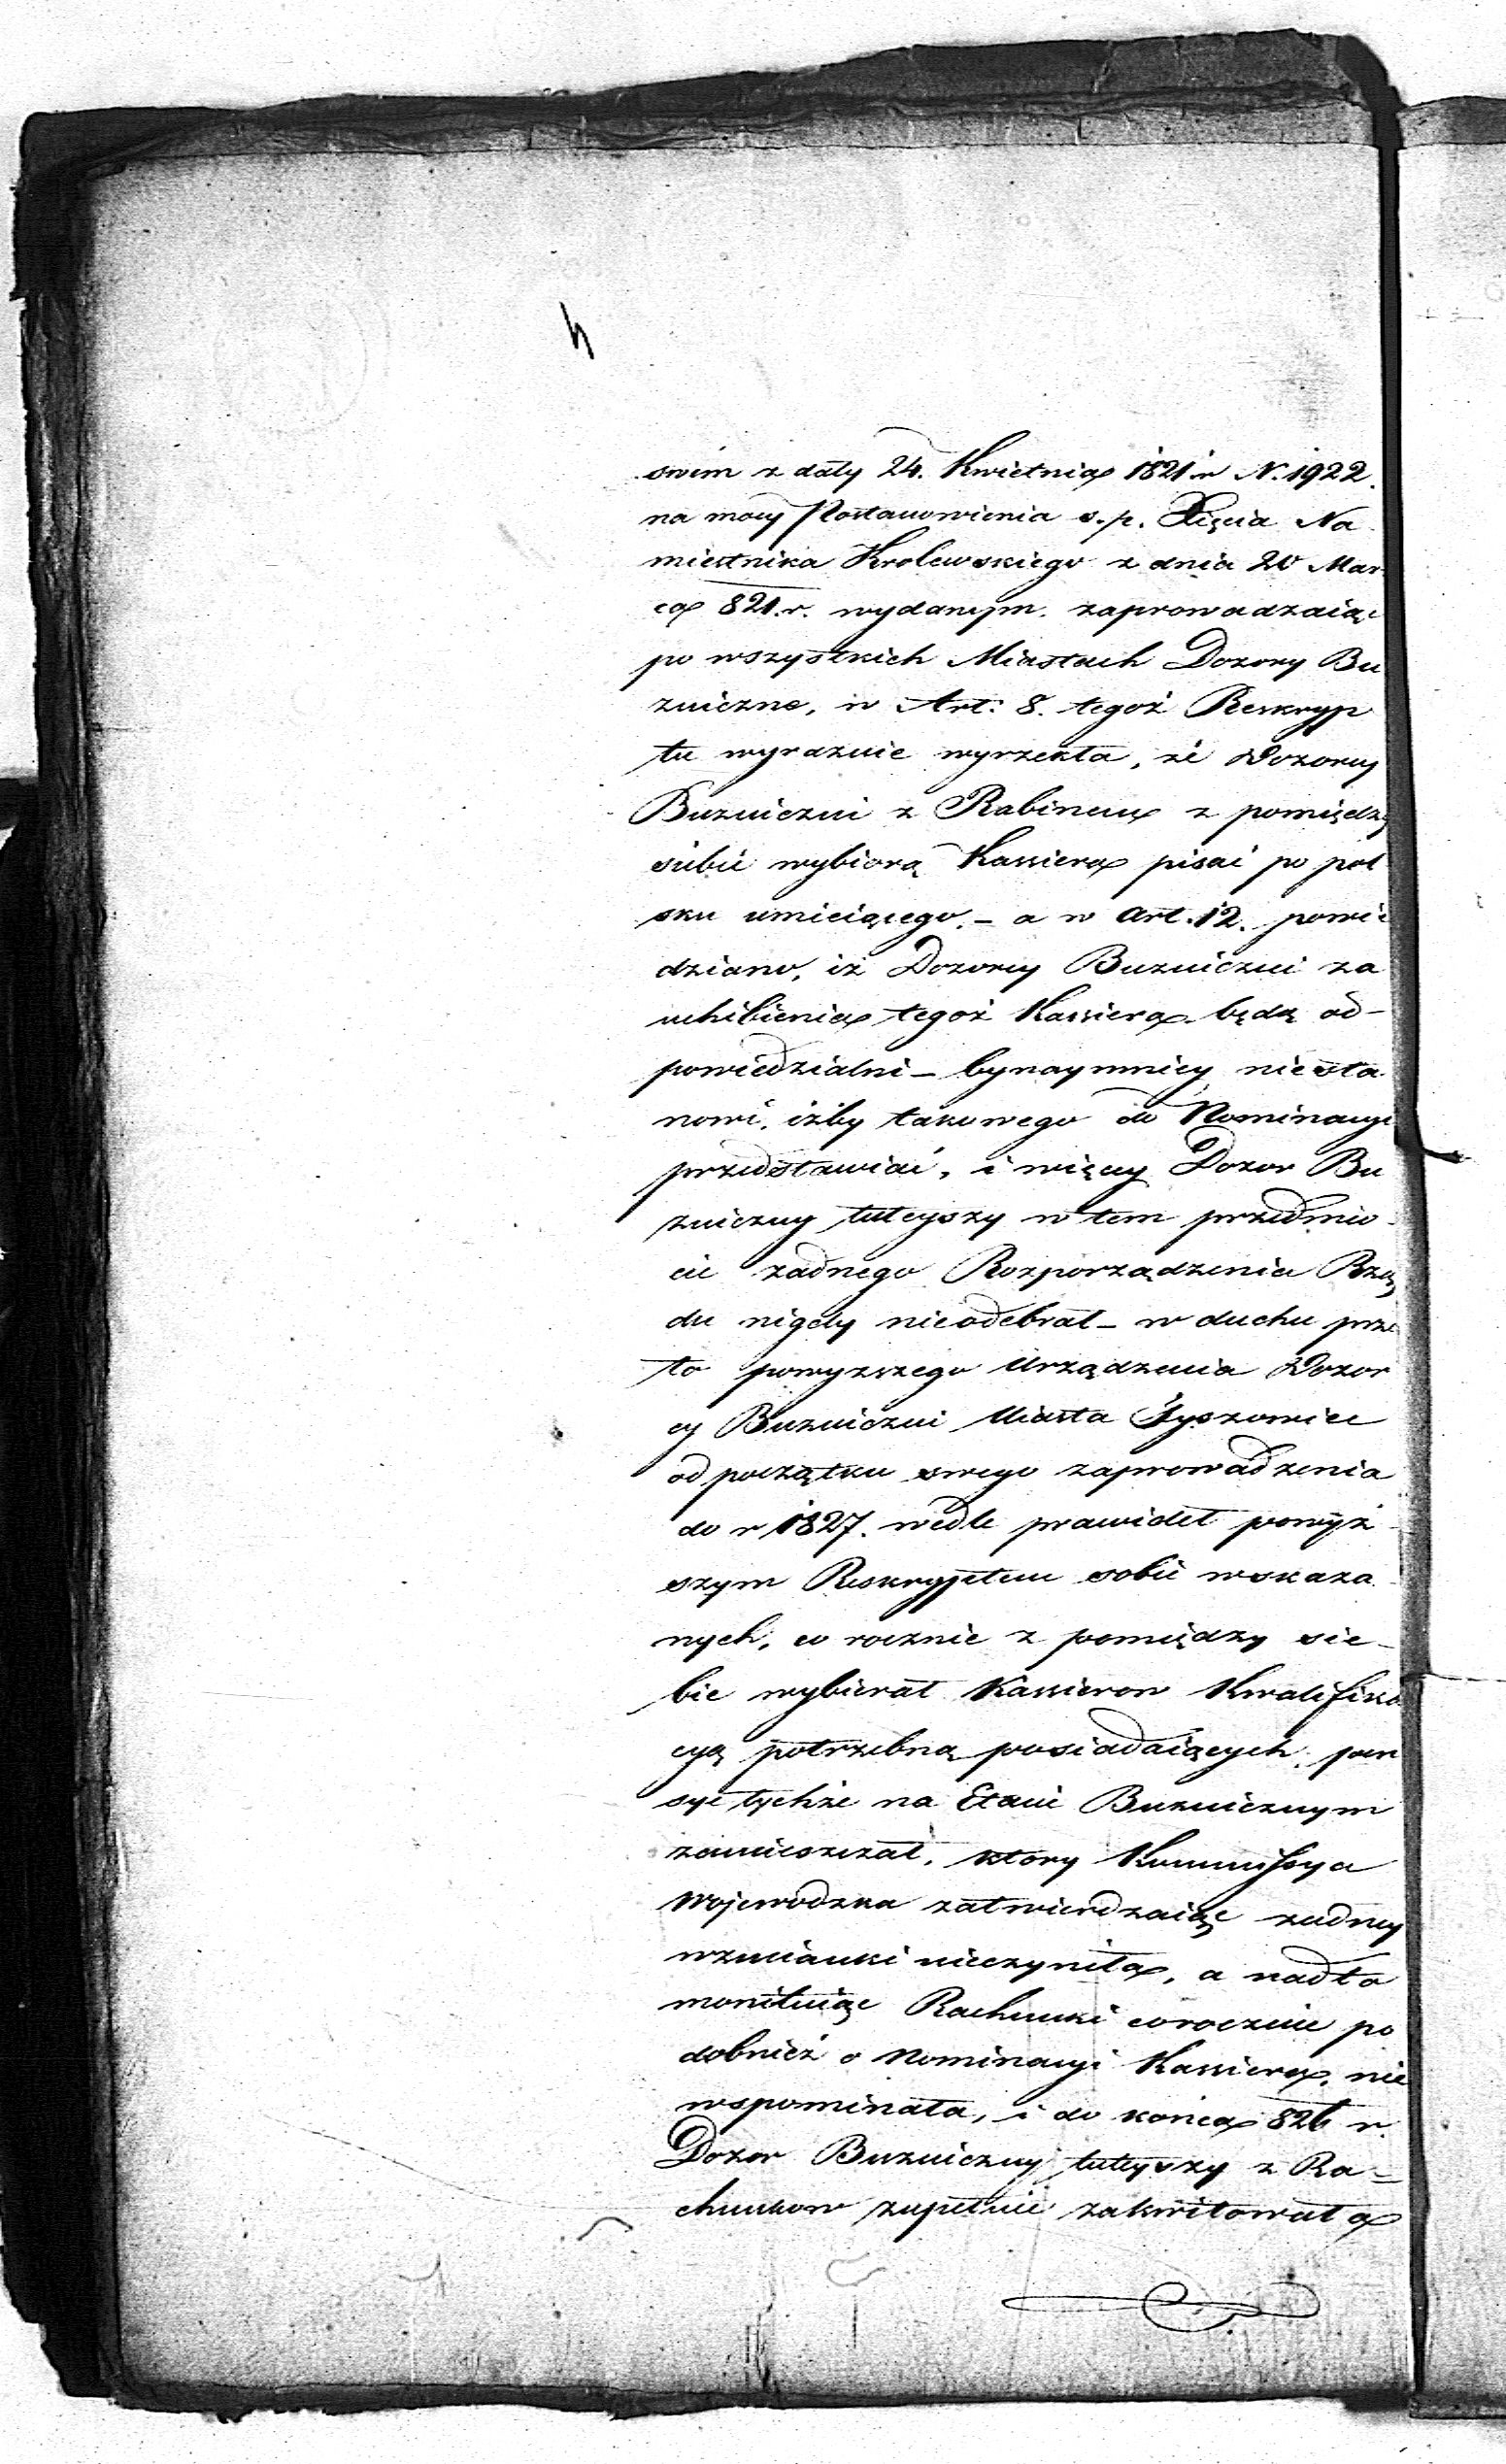 swim z daty 24. Kwietnia 1821 r N. 1922.
na mocy Postanowienia s. p. Xięcia Na
miestnika Krolewskiego z dnia 20 Mar
ca 821. r. wydanym. zaprowadzaiąc
po wszystkich Miastach Dozory Bu
zniczne, w Art: 8. tegoż Reskryp
tu wyraznie wyrzekła, że Dozorcy
Buzniczni z Rabinem z pomiędzy
siebie wybiorą Kassiera pisać po pol
sku umieiącego. – a w Art. 12. powie
dziano, iż Dozorcy Buzniczni za
uchibienia tegoż Kassiera będą od–
powiedzialni – bynaymniey niesta
nowi, iżby takowego do Nominacyi
przedstawiać, i więcey Dozor Bu
zniczny tuteyszy w tem przedmio–
cie żadnego Rozporządzenia Rzą
du nigdy nieodebrał – w duchu prze
to powyższego Urządzenia Dozor
cy Buzniczni Miasta Tyszowiec
od początku swego zaprowadzenia
do r 1827. wedle prawideł powyż–
szym Reskryptem sobie wskaza–
nych, co rocznie z pomiędzy sie–
bie wybierał Kassierow Kwalifika
cyą potrzebną posiadaiących, pen
sye tychże na Etacie Buznicznym
zamieszczał, ktory Kommissya
Wojewodzka zatwierdzaiąc żadney
wzmianki nieczyniła, a nadto
monituiąc Rachunki corocznie po
dobnież o Nominacyi Kassiera nie
wspominała, i do końca 826 r.
Dozor Buzniczny tuteyszy z Ra–
chunkow zupełnie zakwitowała